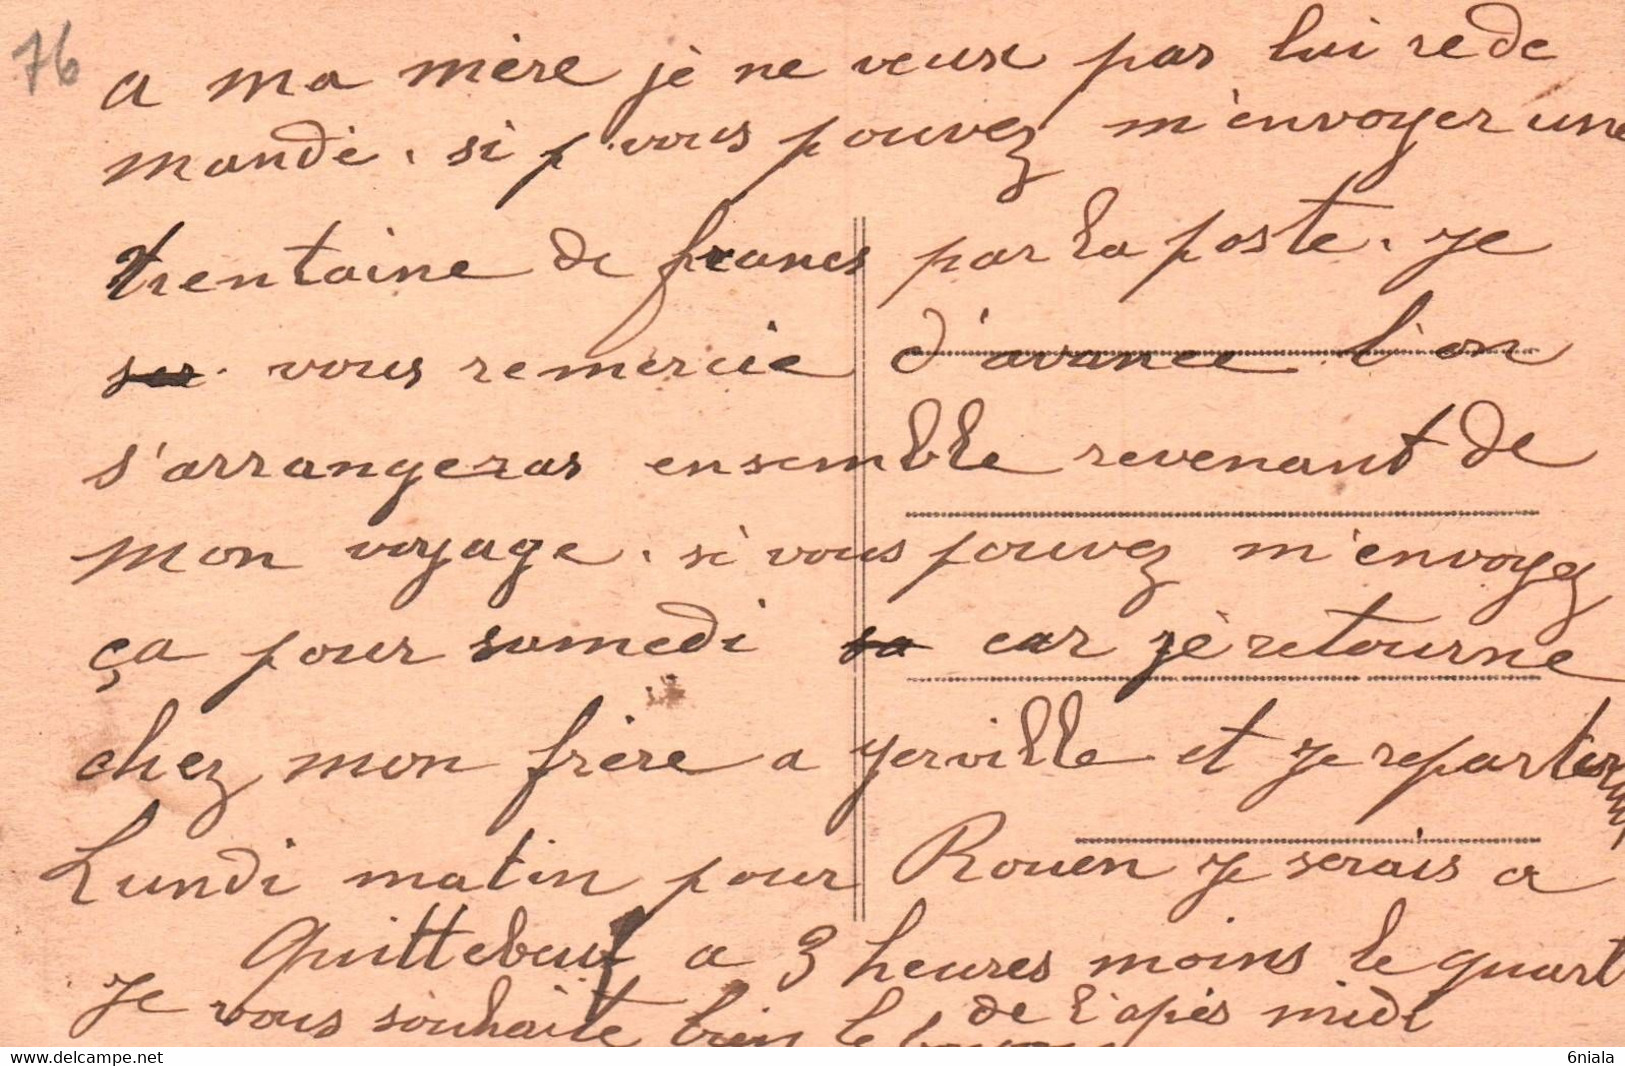 76
a ma mère je ne veux pas lui rede
mandé. si vous pouvez m'envoyer une
trentaine de francs par la poste. Je
vous remercie d'avance l'on
s'arrangeras ensemble revenant de
mon voyage. si vous pouvez m'envoyez
ça pour samedi car je retourne
chez mon frère a yerville et je repartirai
Lundi matin pour Rouen je serais a
Quittebeuf a 3 heures moins le quart
de l'apés midi
Je vous souhaite bien le bonjour
6niala